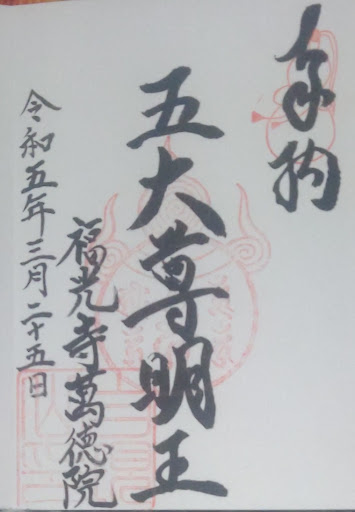 奉拝
五大尊明王
福光寺萬徳院
令和五年三月二十五日